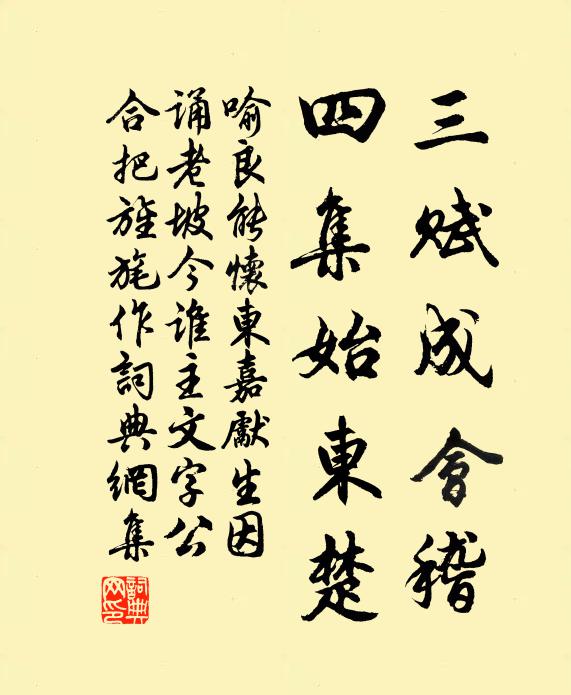 三賦成會稽
四集始東楚
喻良能懷東嘉獻生因
誦老坡今誰主文字公
合把旌旄作詞典網集
詞典網印